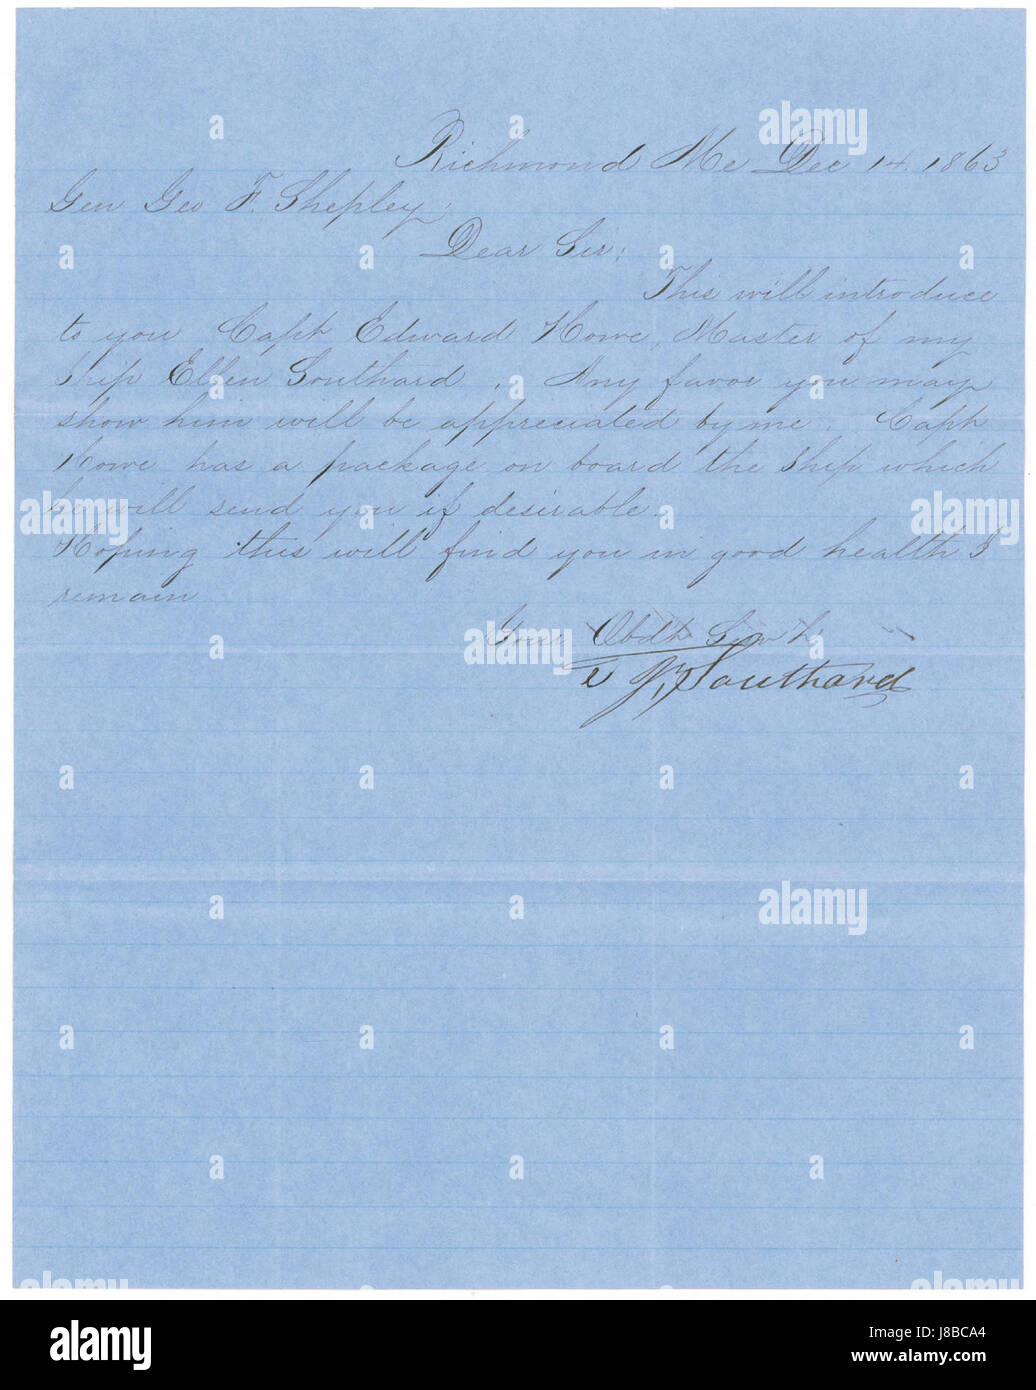 Richmond Me Dec 14. 1863
Gen Geo F. Shepley
Dear Sir:
This will introduce
to you Capt Edward Howe, Master of my
ship Ellen Southard. Any favor you may
show him will be appreciated by me. Capt
Howe has a package on board the ship which
he will send you if desirable.
Hoping this will find you in good health I
remain
Your Obdt Servt
T. J. Southard
alamy
Image ID: J8BCA4
www.alamy.com